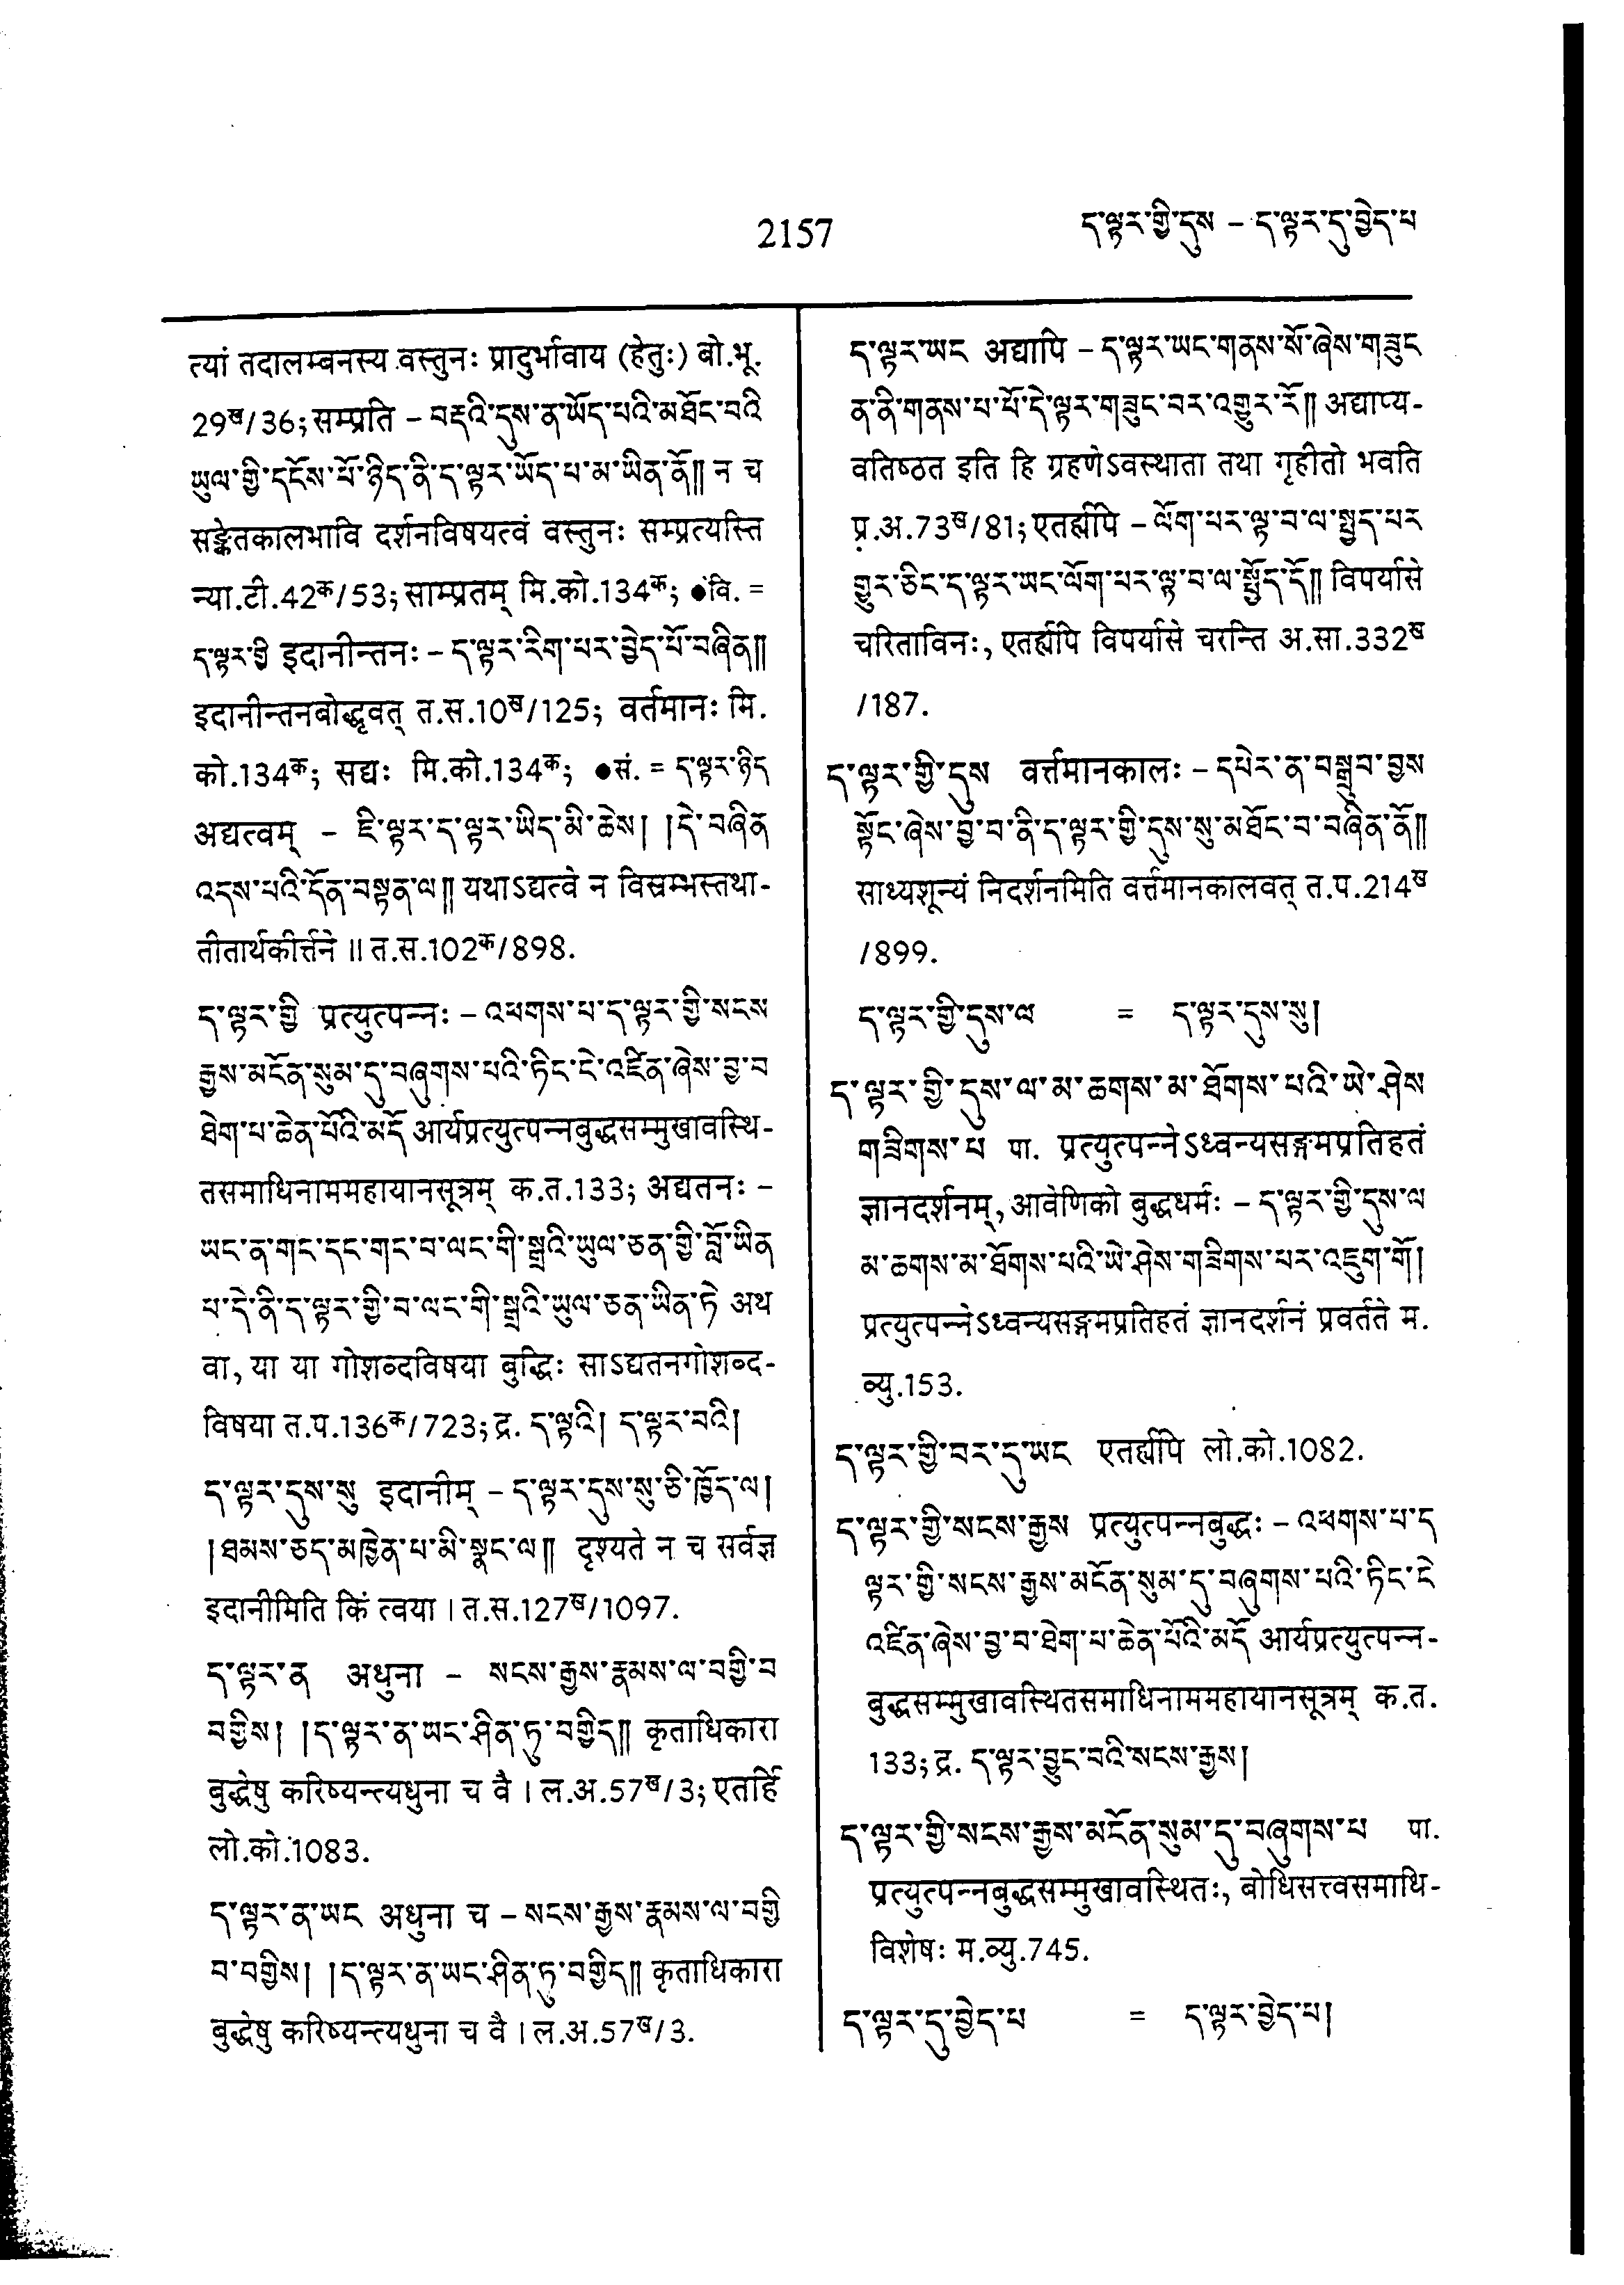 2157
ད་ལྟར་གྱི་དུས – ད་ལྟར་དུ་བྱེད་པ
त्यां तदालम्बनस्य वस्तुनः प्रादुर्भावाय (हेतुः) बो.भू.
29ख/36; सम्प्रति – བརྡའི་དུས་ན་ཡོད་པའི་མཐོང་བའི
ཡུལ་གྱི་དངོས་པོ་ཉིད་ནི་ད་ལྟར་ཡོད་པ་མ་ཡིན་ནོ༎ न च
सङ्केतकालभावि दर्शनविषयत्वं वस्तुनः सम्प्रत्यस्ति
न्या.टी.42क/53; साम्प्रतम् मि.को.134क; ●वि. =
ད་ལྟར་གྱི इदानीन्तनः – ད་ལྟར་རིག་པར་བྱེད་པོ་བཞིན༎
इदानीन्तनबोद्धृवत् त.स.10ख/125; वर्तमानः मि.
को.134क; सद्यः मि.को.134क; ●सं. = ད་ལྟར་ཉིད
अद्यत्वम् – ཇི་ལྟར་ད་ལྟར་ཡིད་མི་ཆེས། །དེ་བཞིན
འདས་པའི་དོན་བསྟན་ལ༎ यथाऽद्यत्वे न विस्रम्भस्तथा-
तीतार्थकीर्त्तने ॥ त.स.102क/898.
ད་ལྟར་གྱི प्रत्युत्पन्नः – འཕགས་པ་ད་ལྟར་གྱི་སངས
རྒྱས་མངོན་སུམ་དུ་བཞུགས་པའི་ཏིང་ངེ་འཛིན་ཞེས་བྱ་བ
ཐེག་པ་ཆེན་པོའི་མདོ आर्यप्रत्युत्पन्नबुद्धसम्मुखावस्थि-
तसमाधिनाममहायानसूत्रम् क.त.133; अद्यतनः –
ཡང་ན་གང་དང་གང་བ་ལང་གི་སྒྲའི་ཡུལ་ཅན་གྱི་བློ་ཡིན
པ་དེ་ནི་ད་ལྟར་གྱི་བ་ལང་གི་སྒྲའི་ཡུལ་ཅན་ཡིན་ཏེ अथ
वा, या या गोशब्दविषया बुद्धिः साऽद्यतनगोशब्द-
विषया त.प.136क/723; द्र. ད་ལྟའི། ད་ལྟར་བའི།
ད་ལྟར་དུས་སུ इदानीम् – ད་ལྟར་དུས་སུ་ཅི་ཁྱོད་ལ།
།ཐམས་ཅད་མཁྱེན་པ་མི་སྣང་ལ༎ दृश्यते न च सर्वज्ञ
इदानीमिति किं त्वया । त.स.127ख/1097.
ད་ལྟར་ན अधुना – སངས་རྒྱས་རྣམས་ལ་བགྱི་བ
བགྱིས། །ད་ལྟར་ན་ཡང་ཤིན་ཏུ་བགྱིད༎ कृताधिकारा
बुद्धेषु करिष्यन्त्यधुना च वै । ल.अ.57ख/3; एतर्हि
लो.को.1083.
ད་ལྟར་ན་ཡང अधुना च – སངས་རྒྱས་རྣམས་ལ་བགྱི
བ་བགྱིས། །ད་ལྟར་ན་ཡང་ཤིན་ཏུ་བགྱིད༎ कृताधिकारा
बुद्धेषु करिष्यन्त्यधुना च वै । ल.अ.57ख/3.
ད་ལྟར་ཡང अद्यापि – ད་ལྟར་ཡང་གནས་སོ་ཞེས་གཟུང
ན་ནི་གནས་པ་པོ་དེ་ལྟར་གཟུང་བར་འགྱུར་རོ༎ अद्याप्य-
वतिष्ठत इति हि ग्रहणेऽवस्थाता तथा गृहीतो भवति
प्र.अ.73ख/81; एतर्ह्यपि – ལོག་པར་ལྟ་བ་ལ་སྤྱད་པར
གྱུར་ཅིང་ད་ལྟར་ཡང་ལོག་པར་ལྟ་བ་ལ་སྤྱོད་དོ༎ विपर्यासे
चरिताविनः, एतर्ह्यपि विपर्यासे चरन्ति अ.सा.332ख
/187.
ད་ལྟར་གྱི་དུས वर्त्तमानकालः – དཔེར་ན་བསྒྲུབ་བྱས
སྟོང་ཞེས་བྱ་བ་ནི་ད་ལྟར་གྱི་དུས་སུ་མཐོང་བ་བཞིན་ནོ༎
साध्यशून्यं निदर्शनमिति वर्त्तमानकालवत् त.प.214ख
/899.
ད་ལྟར་གྱི་དུས་ལ = ད་ལྟར་དུས་སུ།
ད་ལྟར་གྱི་དུས་ལ་མ་ཆགས་མ་ཐོགས་པའི་ཡེ་ཤེས
གཟིགས་པ पा. प्रत्युत्पन्नेऽध्वन्यसङ्गमप्रतिहतं
ज्ञानदर्शनम्, आवेणिको बुद्धधर्मः – ད་ལྟར་གྱི་དུས་ལ
མ་ཆགས་མ་ཐོགས་པའི་ཡེ་ཤེས་གཟིགས་པར་འཇུག་གོ།
प्रत्युत्पन्नेऽध्वन्यसङ्गमप्रतिहतं ज्ञानदर्शनं प्रवर्तते म.
व्यु.153.
ད་ལྟར་གྱི་བར་དུ་ཡང एतर्ह्यपि लो.को.1082.
ད་ལྟར་གྱི་སངས་རྒྱས प्रत्युत्पन्नबुद्धः – འཕགས་པ་ད
ལྟར་གྱི་སངས་རྒྱས་མངོན་སུམ་དུ་བཞུགས་པའི་ཏིང་ངེ
འཛིན་ཞེས་བྱ་བ་ཐེག་པ་ཆེན་པོའི་མདོ आर्यप्रत्युत्पन्न-
बुद्धसम्मुखावस्थितसमाधिनाममहायानसूत्रम् क.त.
133; द्र. ད་ལྟར་བྱུང་བའི་སངས་རྒྱས།
ད་ལྟར་གྱི་སངས་རྒྱས་མངོན་སུམ་དུ་བཞུགས་པ पा.
प्रत्युत्पन्नबुद्धसम्मुखावस्थितः, बोधिसत्त्वसमाधि-
विशेषः म.व्यु.745.
ད་ལྟར་དུ་བྱེད་པ = ད་ལྟར་བྱེད་པ།